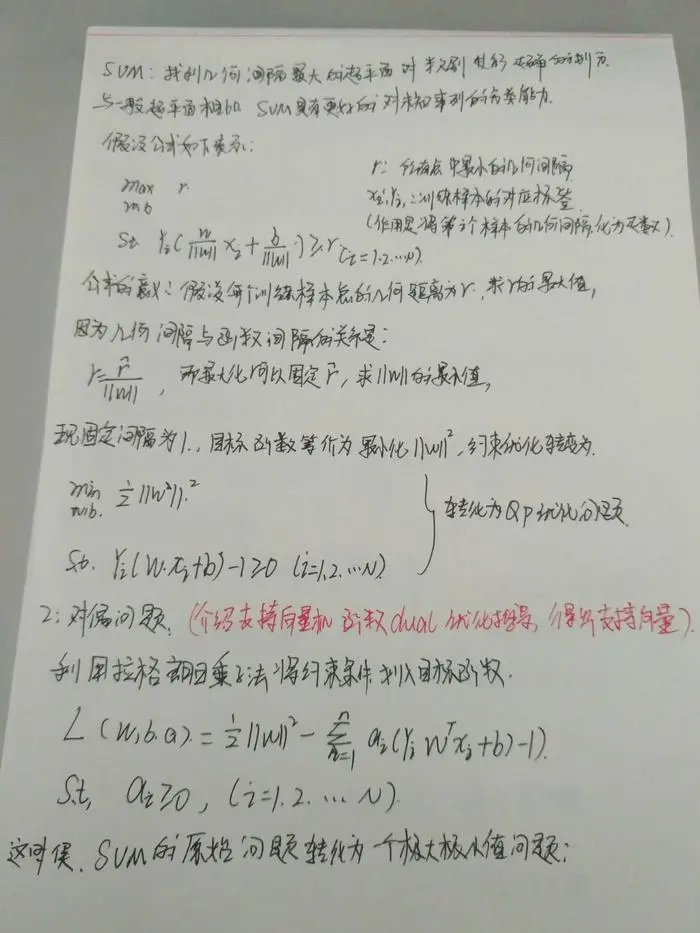 SVM: 找到几何间隔最大的超平面 对 类别 进行 准确的划分.
与一般超平面相比. SVM具有更好的对未知事例的分类能力.
假设公式如下表示:
max w.b r
r: 所有点中最小的几何间隔
xi,yi, : 训练样本的对应标签
(作用是将第i个样本的几何间隔化为正数)
S.t. Yi(w/||w|| xi + b/||w||) ≥ r (i=1.2...N).
公式的意义: 假设每个训练样本点的几何距离为r, 求r的最大值,
因为几何间隔与函数间隔的关系是:
r = r̂/||w|| , 即最大化r可以固定r̂, 求||w||的最小值,
现固定间隔为1., 目标函数等价为最小化||w||², 约束优化转变为.
min w.b. ½||w²||.²
转化为QP优化问题
S.t. Yi(w.xi+b)-1≥0 (i=1.2...N)
2: 对偶问题. (介绍支持向量机函数dual优化推导, 得出支持向量).
利用拉格朗日乘子法将约束条件划入目标函数.
L (w,b.a). = ½||w||² - Σ(i=1 to n) ai(Yi wᵀxi+b)-1).
S.t, ai≥0, (i=1.2.... N).
这时候. SVM的原始问题转化为一个极大极小值问题: